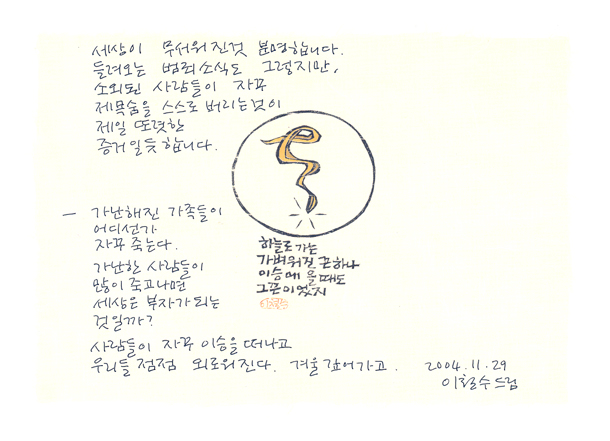 세상이 무서워진것 분명합니다.
들려오는 범죄소식도 그렇지만,
소외된 사람들이 자꾸
제목숨을 스스로 버리는것이
제일 또렷한
증거일듯 합니다.
— 가난해진 가족들이
어디선가
자꾸 죽는다.
가난한 사람들이
많이 죽고나면
세상은 부자가 되는
것일까?
사람들이 자꾸 이승을 떠나고
우리들 점점 외로워진다. 겨울 깊어가고.
하늘로 가는
가벼워진 끈 하나
이승에 올 때도
그끈이었지
2004.11.29
이철수 드림